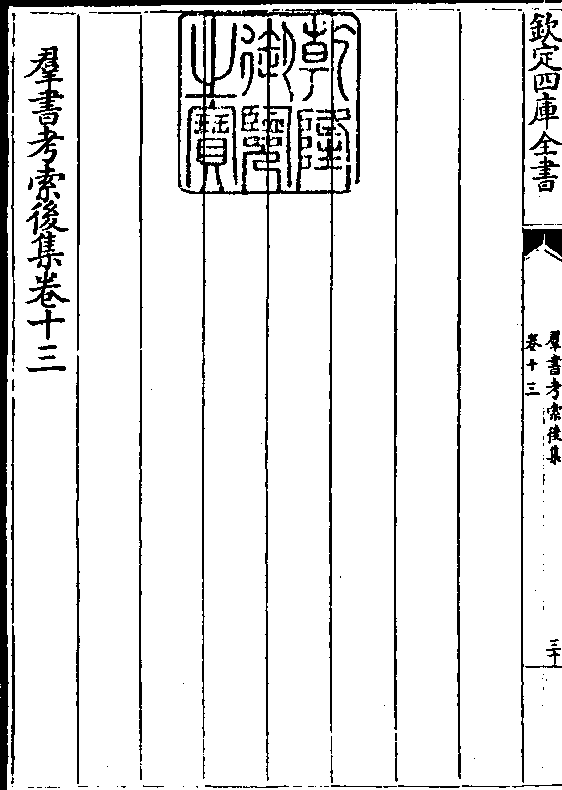 欽定四庫全書
羣書考索後集
卷十三
三十
乾隆
御覽
之寶
羣書考索後集卷十三